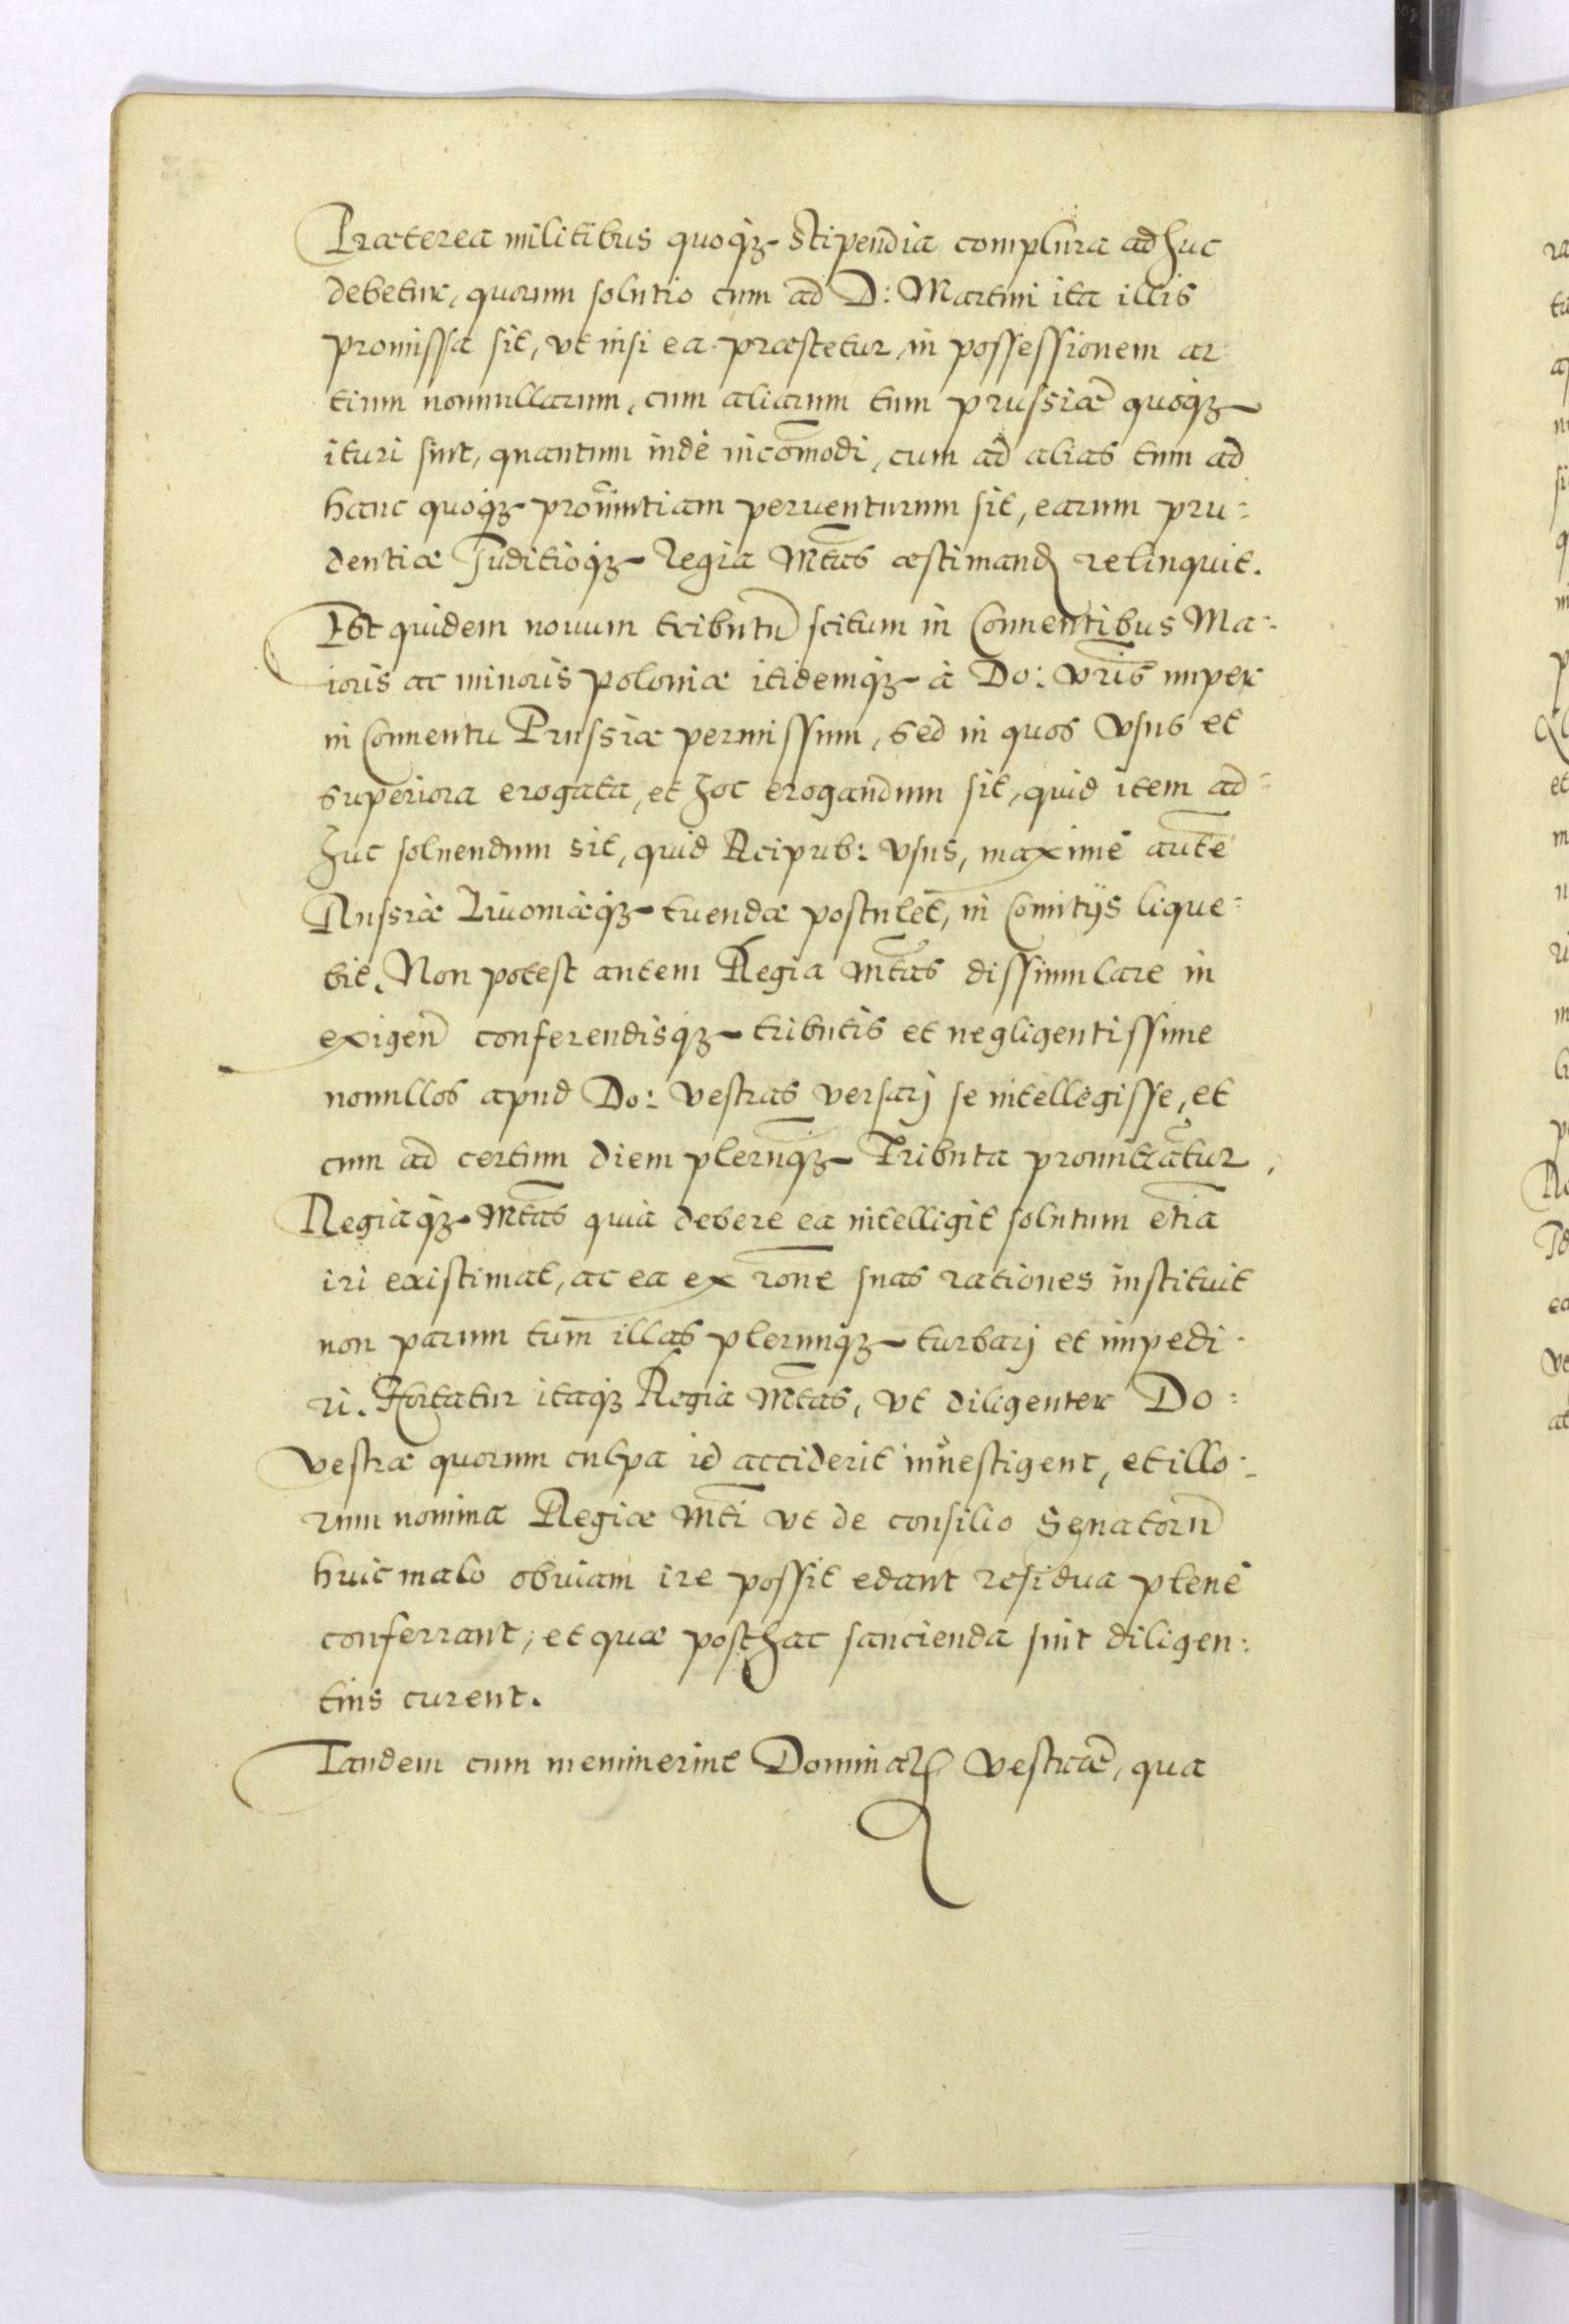 Præterea militibus quoqꝫ stipendia complura adhuc
debetur, quorum solutio cum ad D: Martini ita illis
promissa sit, vt nisi ea præstetur, in possessionem ar
tium nonnullarum, cum aliarum tum prussiæ quoqꝫ
ituri sint, quantum inde incōmodi, cum ad alias tum ad
hanc quoqꝫ prouintiam peruenturum sit, earum pru:
dentiæ Juditioqꝫ Regia Mtas æstimand relinquit.
Est quidem nouum tributū scitum in Conuentibus Ma:
ioris ac minoris poloniæ itidemqꝫ à Do: vris nuper
in Conuentu Prussiæ permissum, sed in quos vsus et
superiora erogata, et hoc erogandum sit, quid item ad:
huc soluendum sit, quid Reipub: vsus, maximè autē
Russiæ Liuoniæqꝫ tuendæ postulet, in Comitijs lique:
bit. Non potest autem Regia Mtas dissimulare in
exigen̄ conferendisqꝫ tributis et negligentissime
nonullos apud Do: vestras versarj se intellegisse, et
cum ad certum diem plerūqꝫ Tributa promittātur,
Regiaqꝫ Mtas quia debere ea intelligit solutum etiā
iri existimat, ac ea ex rone suas rationes instituit
non parum tum illas plerunqꝫ turbarj et impedi:
ri. Hortatur itaqꝫ Regia Mtas, vt diligenter Do:
vestræ quorum culpa id acciderit inuestigent, et illo:
rum nomina Regiæ Mti vt de consilio Senatorū
huic malo obuiam ire possit edant residua plenè
conferrant; et quæ posthac sancienda sint diligen:
tius curent.
Tandem cum meminerint Dominaꝝ vestræ, qua